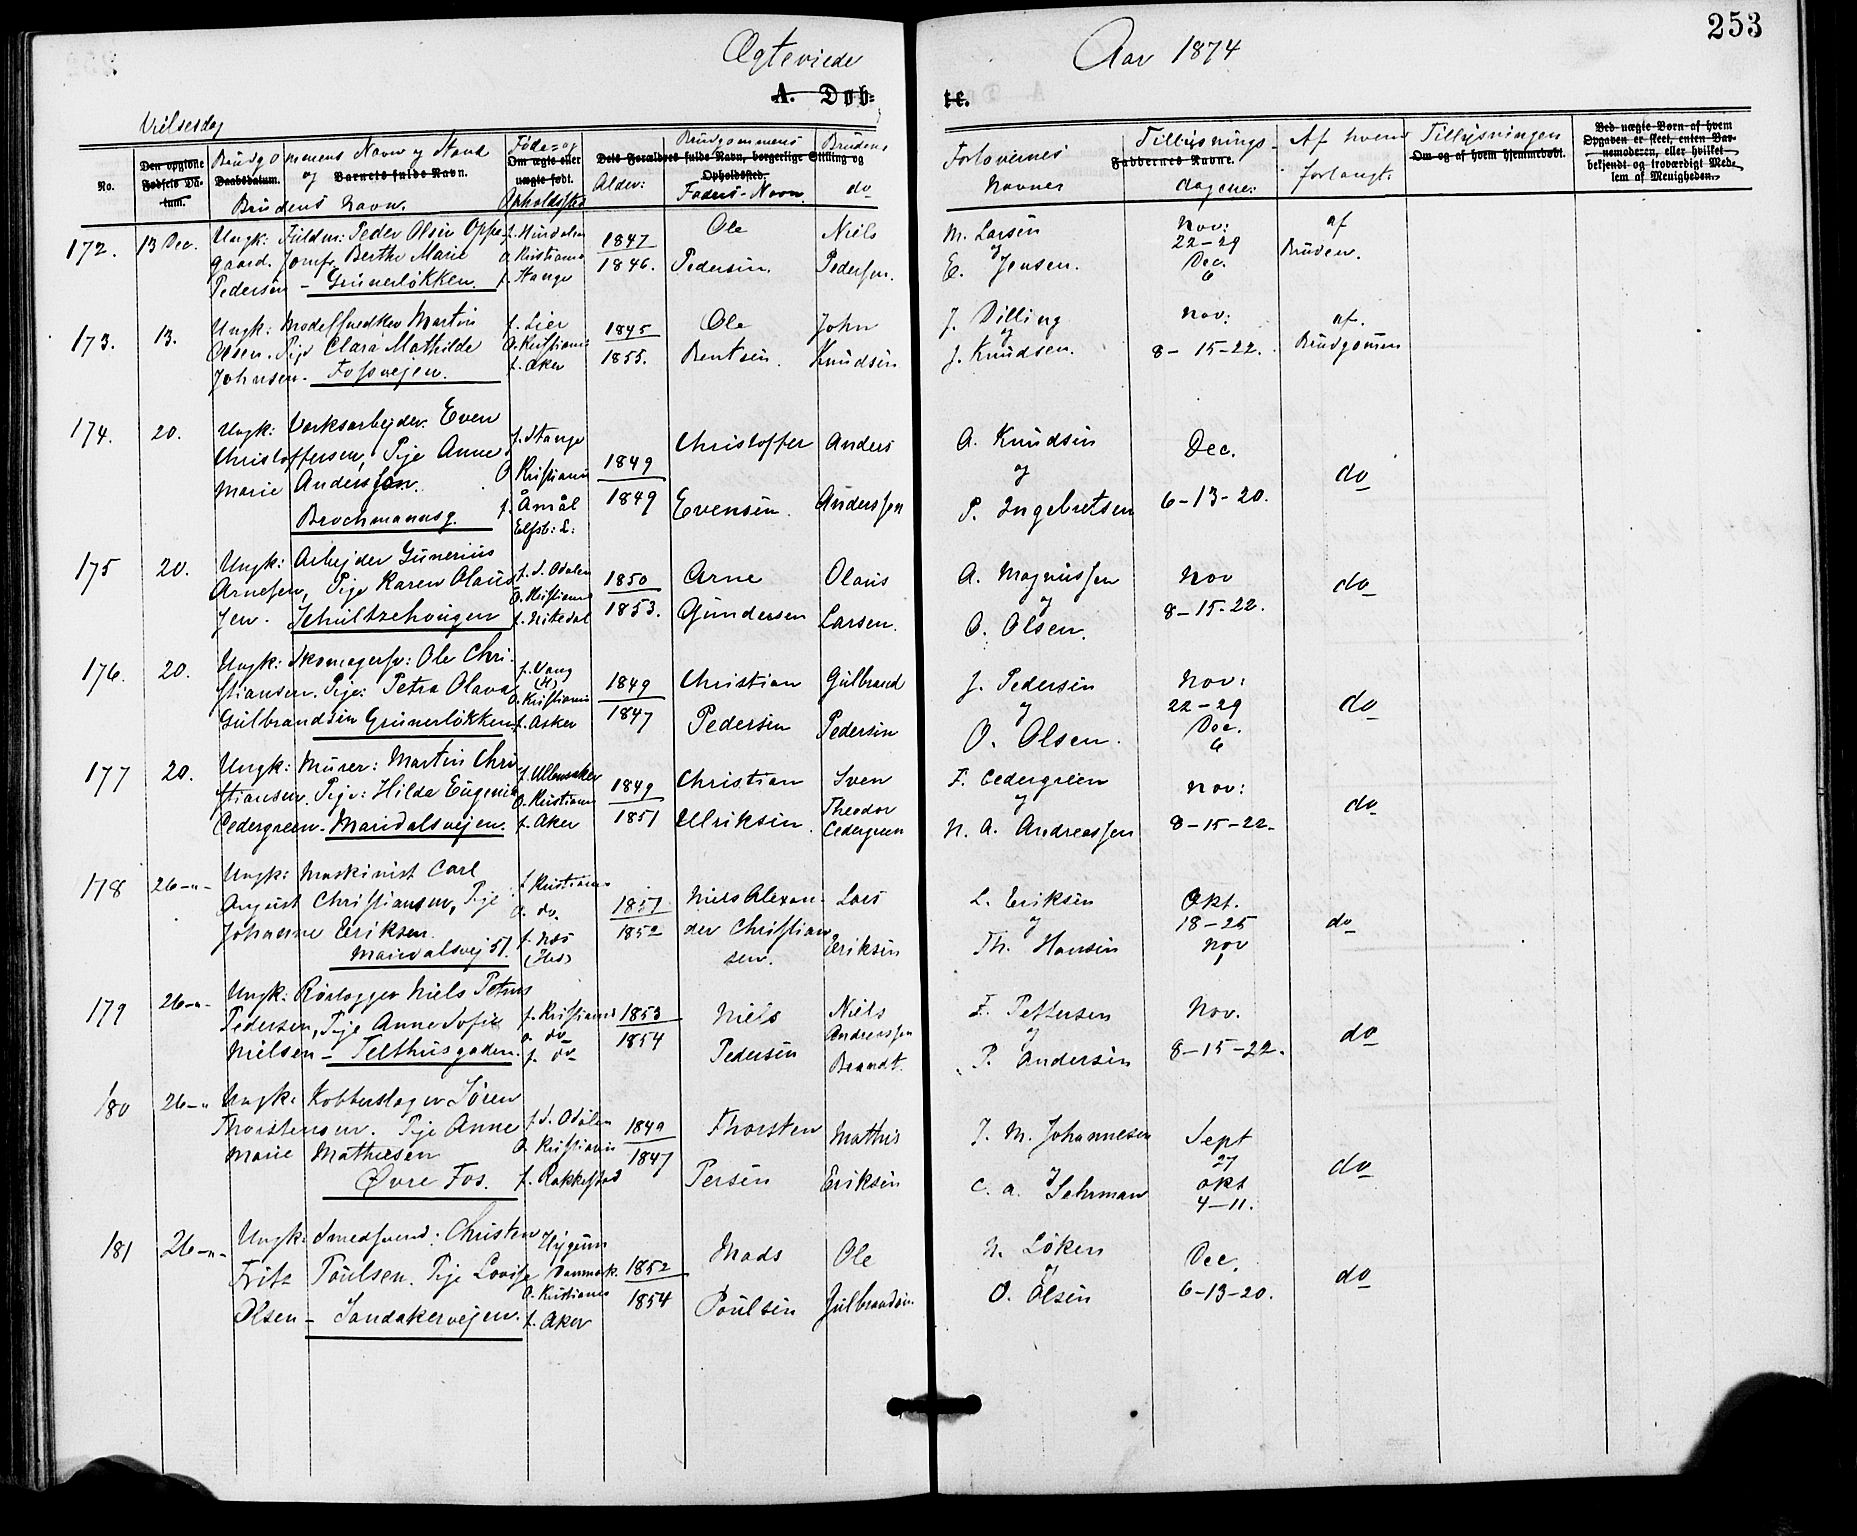 253
Ægteviede Aar 1874
A. Døb= te.
Vielsesdag
No.
Den opgivne Fødsels Da- tum.
Daabsdatum. Barnets fulde Navn.
Brudgommens Navn og Stand
og
Brudens Navn.
Føde- og
Om ægte eller uægte født.
Opholdssted
Alder:
Dets Forældres fulde Navn, borgerlige Stilling og Opholdssted.
Brudgommens
Faders-Navn.
Brudens
do
Forlovernes
Navner
Faddernes Navne.
Tillysnings-
dagene:
Af hvem Tillysningen
forlangt.
Om og af hvem hjemmedøbt.
Ved uægte Børn af hvem
Opgaven er skeet, enten Bar-
nemoderen, eller hvilket
bekjendt og troværdigt Med-
lem af Menigheden.
172. 13 Dec.
Ungk: Peder Olsen Oppe
gaard. Jomfr. Berthe Marie
Pedersen - Grünerløkken.
O. Kristiania
f. Stange
1847
1846.
Ole
Pedersen.
Niels
Pedersen.
M. Larsen
og
E. Jensen.
Nov:
22-29
Dec.
6
af
Bruden.
173. 13.
Ungk: Modelsnedker Martin
Olsen. Pige Clara Mathilde
Johnsen. Fossvejen.
f. Lier
O. Kristiania
f. Aker
1845
1855.
Ole
Bentsen.
John
Knudsen
J. Dilling
og
J. Knudsen.
Nov:
8- 15-22.
af.
Brudgommen
174. 20.
Ungk: Værksarbejder. Even
Christoffersen, Pige Anne
Marie Anderssen.
Brochmannsg.
f. Stange
O. Kristiania
f. Åmål
Elfsb: L:
1849
1849
Christoffer
Evensen.
Anders
Anderssen
A. Knudsen
og
P. Ingebretsen
Dec.
6-13-20.
do
175 20.
Ungk: Arbejder Gunerius
Arnesen, Pige Karen Olaus
sen. Schultzehougen
f. S. Odalen
O. Kristiania
f. Nitedal
1850
1853.
Arne
Gundersen
Olaus
Larsen.
A. Magnussen
og
O. Olsen.
Nov
8-15-22.
do
176. 20.
Ungk: Skomagersv: Ole Chri-
stiansen. Pige: Petra Olava
Gulbrandsen Grünerløkken
f. Vang
(H)
O. Kristiania
f. Asker
1849
1847
Christian
Pedersen
Gulbrand
Pedersen
J. Pedersen
og
O. Olsen.
Nov:
22-29
Dec.
6
do
177 20.
Ungk: Murer: Martin Chri-
stiansen. Pige: Hilda Eugenie
Cedergreen - Maridalsvejen.
f. Ullensaker
O. Kristiania
f. Aker
1849
1851
Christian
Ulriksen.
Sven
Theodor
Cedergreen
F. Cedergreen
og
N. A. Andreassen
Nov:
8-15-22-
do
178 26-"-
Ungk: Maskinist Carl
August Christiansen, Pige
Johanne Eriksen.
Maridalsvej 51.
f. Kristiania
O. do.
f. Næs
(Hed)
1851
1852
Niels Alexan-
der Christian
sen.
Lars
Eriksen
L. Eriksen
og
Th. Hansen
Okt.
18-25
Nov
1
do
179 26-"-
Ungk: Rørlægger Niels Petrus
Pedersen, Pige Anne Sofie
Nielsen - Telthusgaden.
f. Kristiania
o. do
f. do
1853
1854
Niels
Pedersen
Niels
Andreassen
Brandt.
F. Pettersen
og
P. Andersen
Nov.
8-15-22.
do
180 26-"
Ungk: Kobberslager Søren
Thorstensen. Pige Anne
Marie Mathiesen
Øvre Fos.
f. S. Odalen
O. Kristiania
f. Rakkestad
1849
1847
Thorsten
Persen
Mathis
Eriksen
J. M. Johannesen
C. A. Sehrman
Sept
27
Okt
4-11.
do
181 26-"-
Ungk: Smedsvend: Christen
Fritz Poulsen. Pige Lovise
Olsen - Sandakervejen.
Hygum
Danmark.
O. Kristiania
f. Aker
1852
1854
Mads
Poulsen
Ole
Gulbrandsen
N. Løken
og
O. Olsen
Dec.
6-13-20.
do